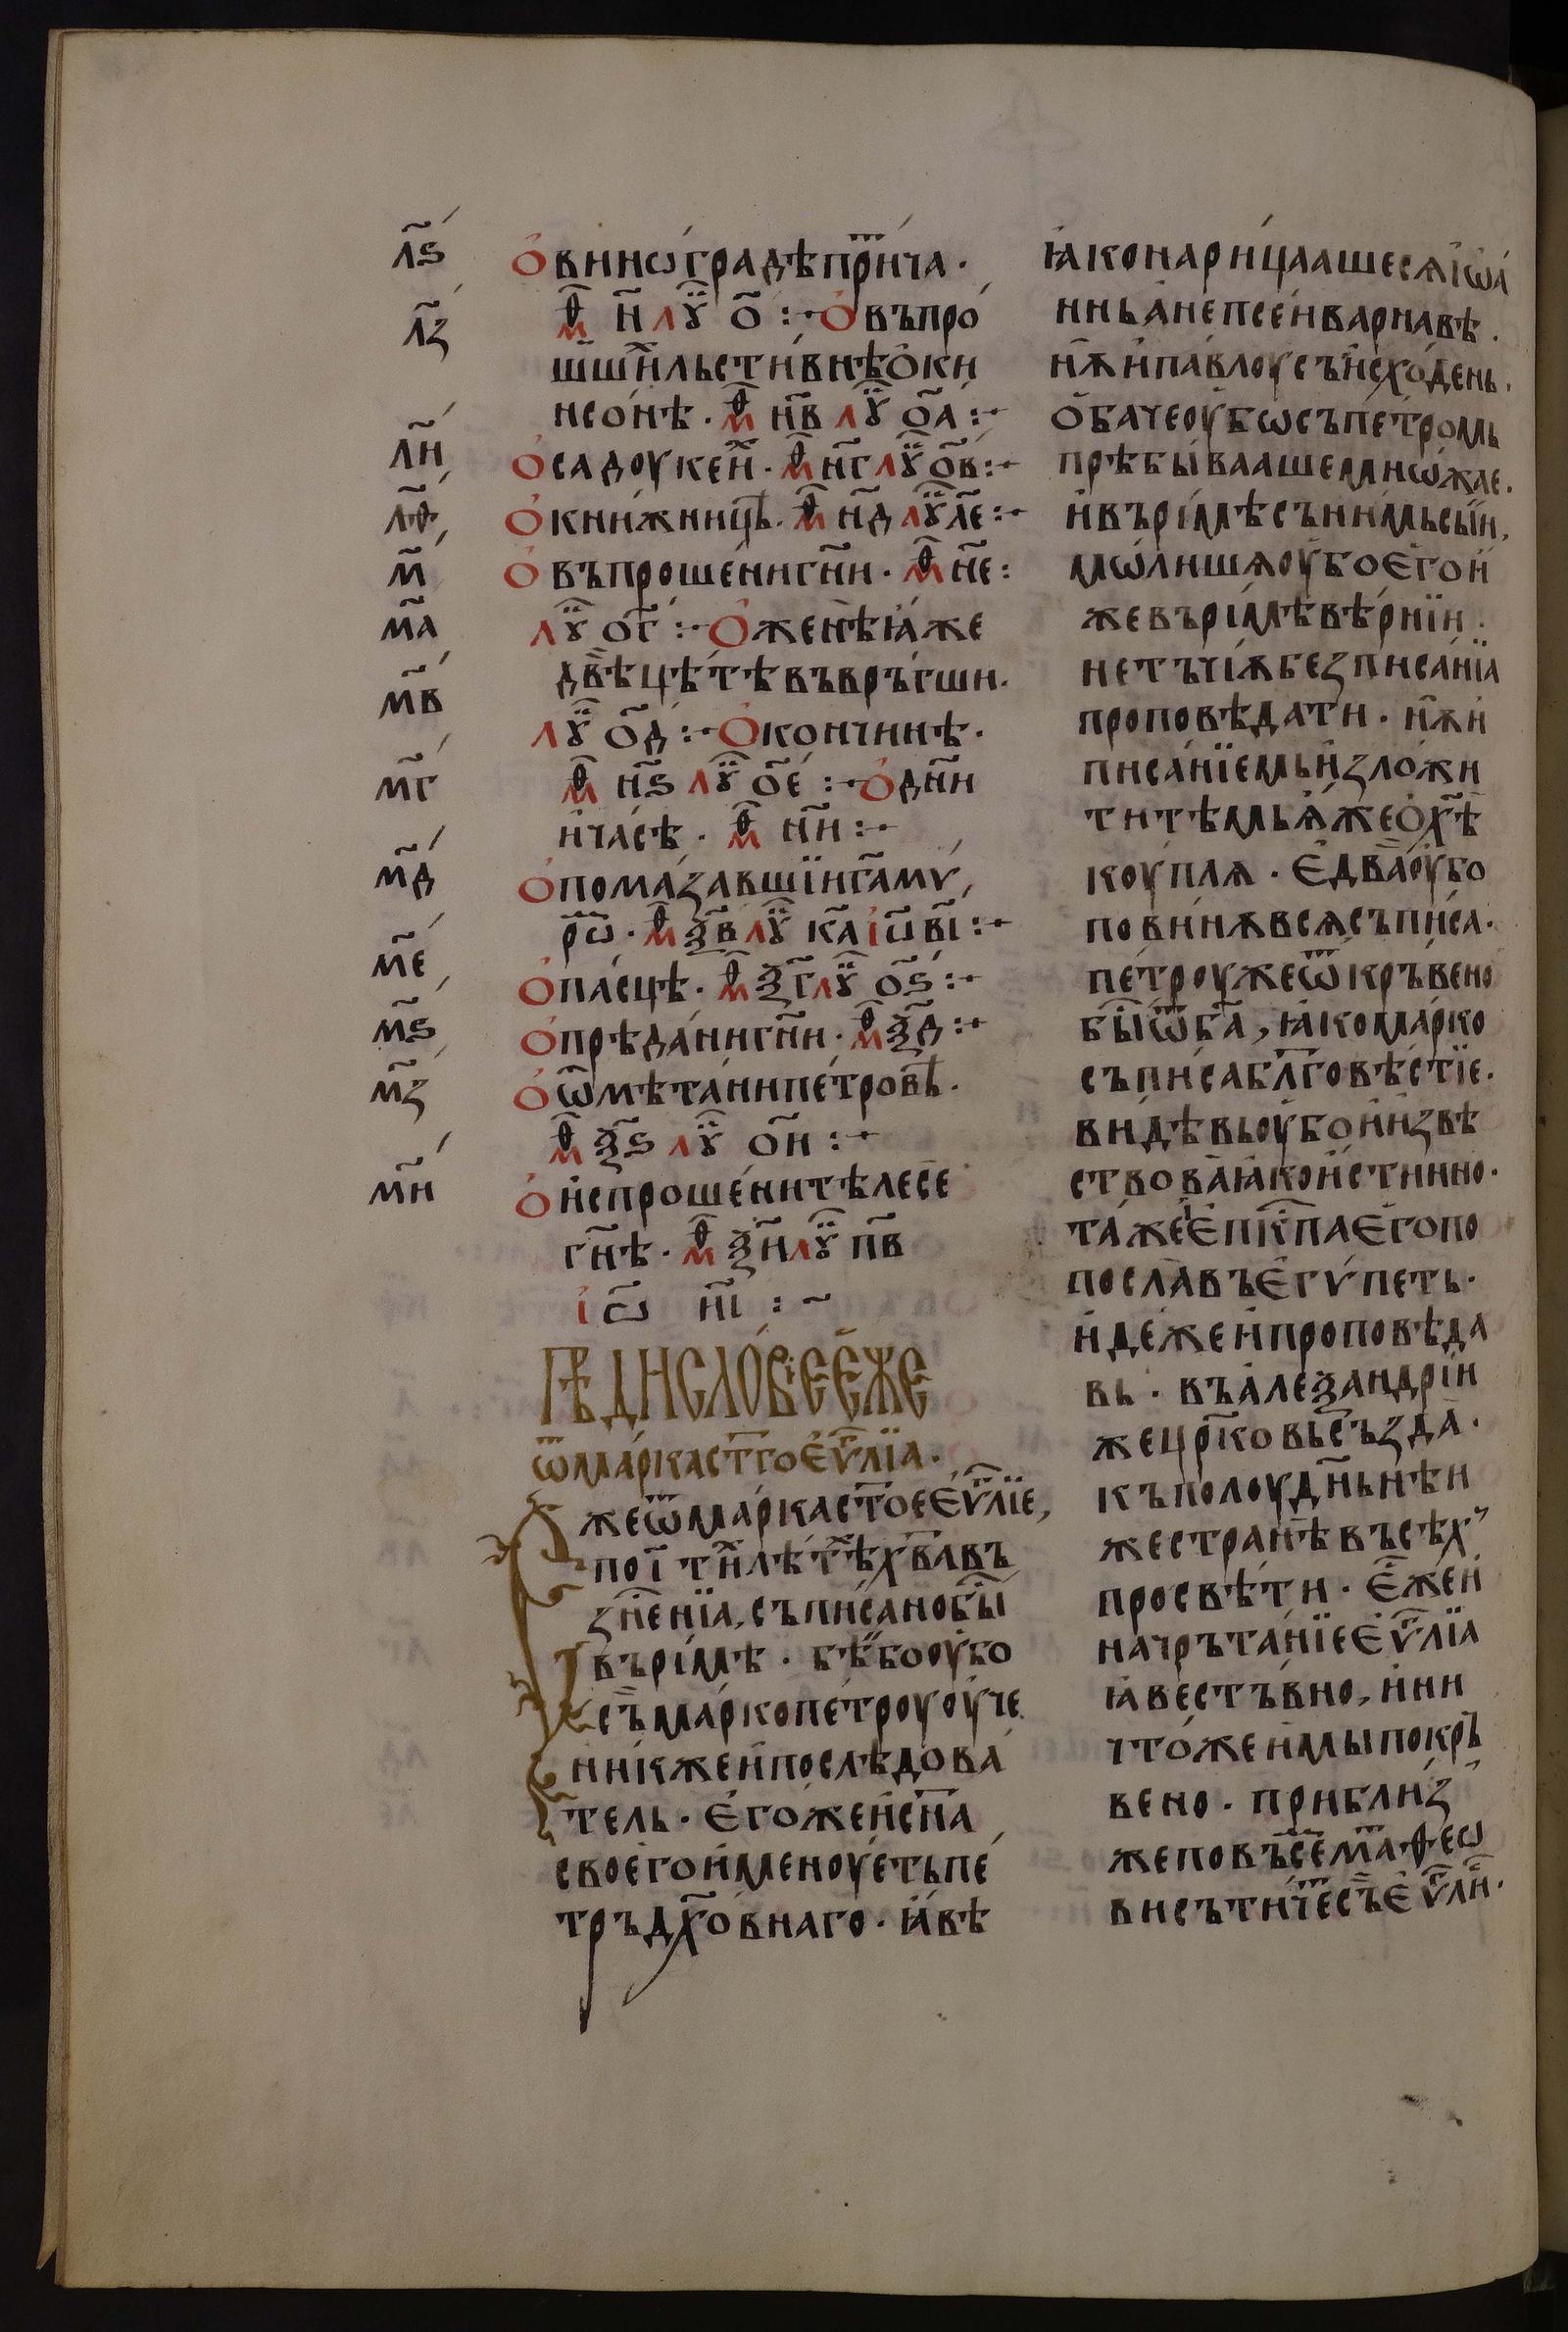 л҃ѕ Ѻ винѡградѣ при́тча ·
л҃з мⷴ н҃ лꙋⷦ о҃ :· Ѻ въпро
шьшиⷯ льстивнѣ о ки
нсонѣ · мⷴ н҃в лꙋⷦ о҃а :·
л҃и Ѻ садоукеиⷯ · мⷴ н҃г лꙋⷦ о҃в :·
л҃ѳ Ѻ книжницѣ · мⷴ н҃д лꙋⷦ л҃е :·
м҃ Ѻ въпрошени гн҃и · мⷴ н҃е :
м҃а лꙋⷦ о҃г :· Ѻ женѣ ꙗже
двѣ цѣтѣ въвръгши ·
м҃в лꙋⷦ о҃д :· Ѻ кончинѣ ·
м҃г мⷴ н҃ѕ лꙋⷦ о҃е :· Ѻ дн҃и
и часѣ · мⷴ н҃и :·
м҃д Ѻ помазавшїи га҃ мѵ
рѡⷨ · мⷴ ѯ҃в лꙋⷦ к҃а іѡ҃ в҃і :·
м҃е Ѻ пасцѣ · мⷴ ѯ҃г лꙋⷦ о҃ѕ :·
м҃ѕ Ѻ прѣдани гн҃и · мⷴ ѯ҃д :·
м҃з Ѻ ѿмѣтани петровѣ ·
мⷴ ѯ҃ѕ лꙋⷦ о҃и :·
м҃и Ѻ испрошени тѣлесе
гн҃ѣ · мⷴ ѯ҃и лꙋⷦ п҃в
іѡ҃ н҃і : ~
Прⷣѣдисловїе еже
ѿ марка ст҃го еѵ҃лїа ·
Еже ѿ марка ст҃ое еѵ҃лїе,
по і҃ тиⷯ лѣтѣⷯ хв҃а въ
знⷭ҇енїа, съписано быⷭ҇
въ римѣ · бѣ бо оубо
съ марко петроу оуче
никь же и послѣдова
тель · его же и сн҃а
своего именоуеть пе
тръ дх҃овнаго · ꙗвѣ
ꙗко нарицааше сѧ іѡа
ннь анепсеи варнавѣ ·
нѫ и павлоу съ исходень ·
обаче оубѡ съ петромь
прѣбывааше мнѡжае ·
и въ римѣ съ нимь сыи,
мѡлишѧ оубо его и
же въ римѣ вѣрнїи ·
не тъчїѫ без писанїа
проповѣдати · нѫ и
писанїемь изложи
ти тѣмь ѧже о хѣ҃
коуплѧ · едва оубо
повинѫвсѧ съписа ·
петроу же ѿкръвено
быⷭ҇ ѿ ба҃, ꙗко марко
съписа блг҃овѣстїе ·
видѣвь оубо и извѣ
ствова ꙗко истинно ·
таже и епкⷭ҇па его по
посла въ егѵпеть ·
идеже и проповѣда
вь · въ алеѯандрїи
же цр҃ковь създа ·
къ полоудн҃ьнѣи
же странѣ въсѣхъ
просвѣти · еⷭ҇ же и
начрътанїе еѵ҃лїа
ꙗвестъвно, и ни
что же имы покръ
вено · приближ
же по въсемⷹ маⷴѳеѡ
ви сътичесѧ еѵ҃ли ·